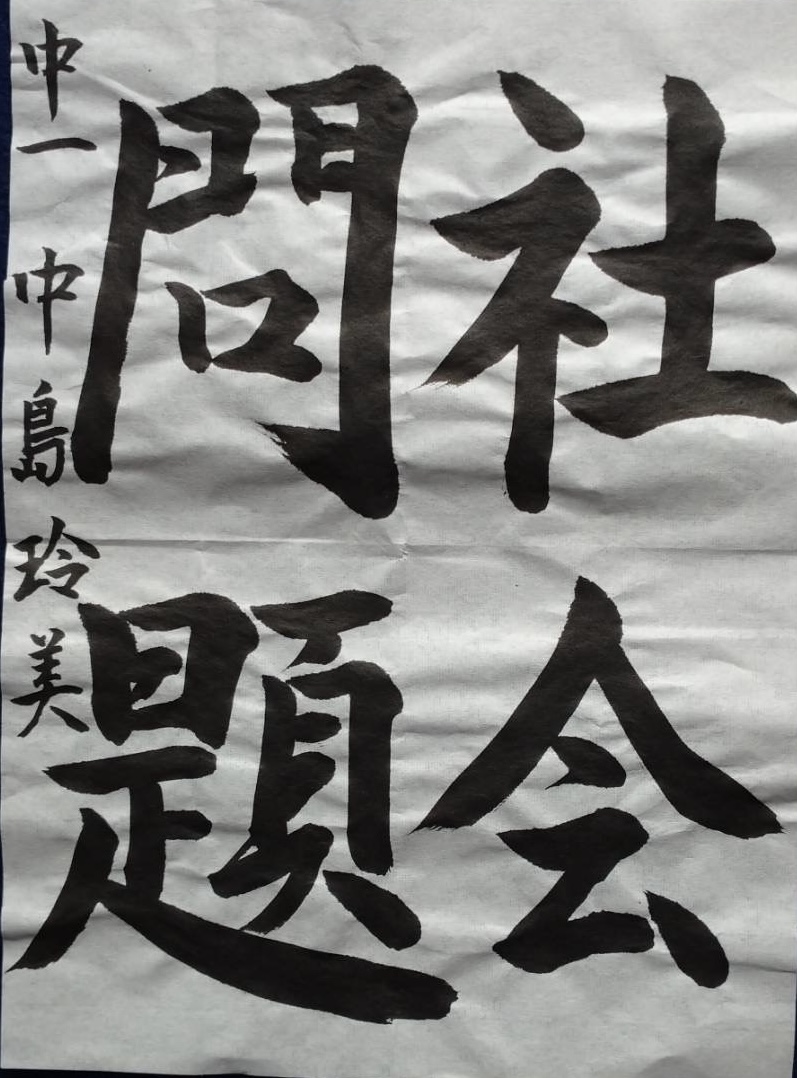 社会
問題
中一 中島玲美